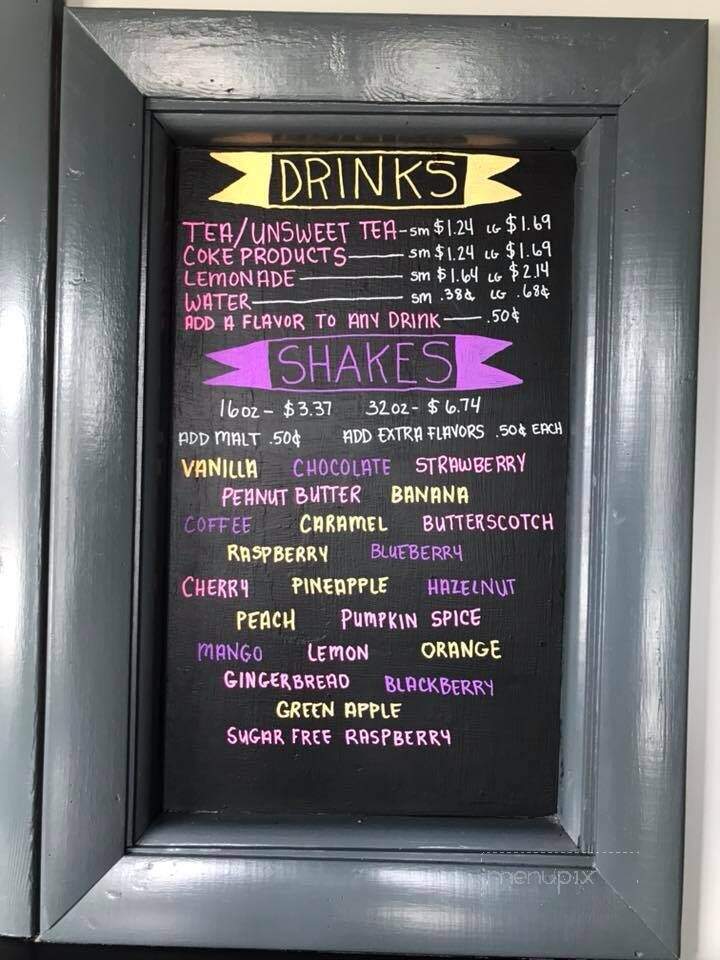 DRINKS
TEA/UNSWEET TEA - sm $1.24 LG $1.69
COKE PRODUCTS - sm $1.24 LG $1.69
LEMONADE - sm $1.64 LG $2.14
WATER - sm .38¢ LG .68¢
ADD A FLAVOR TO ANY DRINK - .50¢
SHAKES
16oz - $3.37 32oz - $6.74
ADD MALT .50¢ ADD EXTRA FLAVORS .50¢ EACH
VANILLA CHOCOLATE STRAWBERRY
PEANUT BUTTER BANANA
COFFEE CARAMEL BUTTERSCOTCH
RASPBERRY BLUEBERRY
CHERRY PINEAPPLE HAZELNUT
PEACH PUMPKIN SPICE
MANGO LEMON ORANGE
GINGERBREAD BLACKBERRY
GREEN APPLE
SUGAR FREE RASPBERRY
menupix